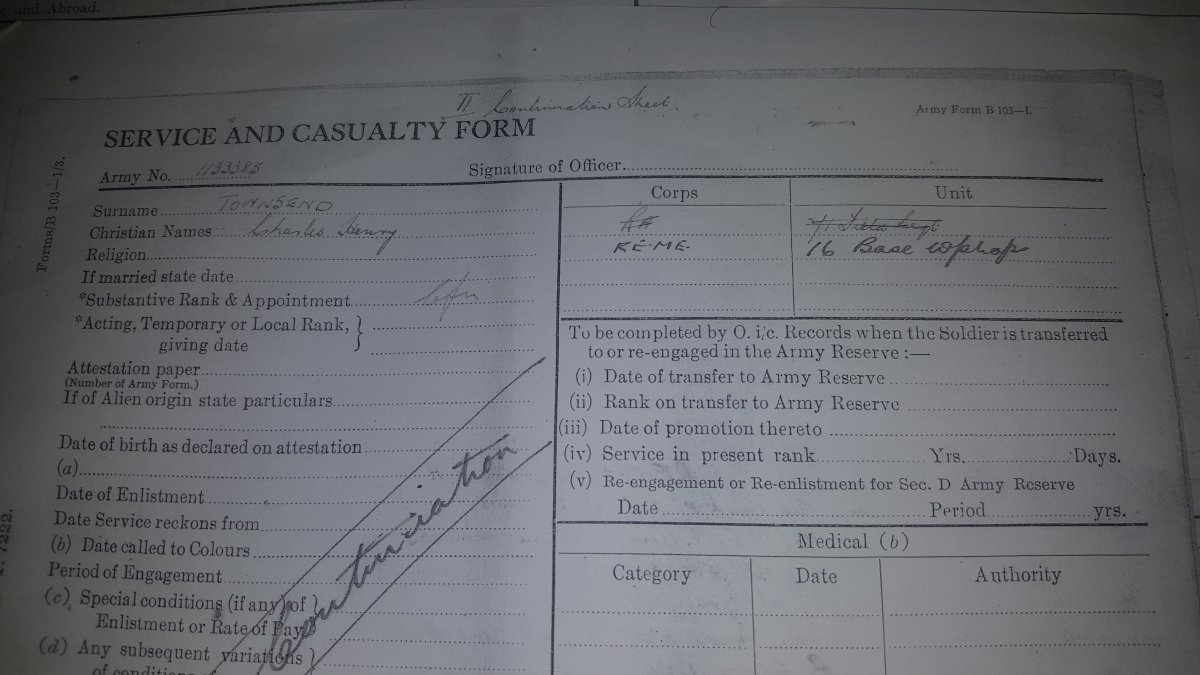 and Abroad.
II Continuation Sheet.
Army Form B 103—1.
SERVICE AND CASUALTY FORM
Forms/B 103—1/3.
Army No. 1133385
Signature of Officer
Surname TOWNSEND
Christian Names Charles Henry
Religion
If married state date
*Substantive Rank & Appointment Cfn
*Acting, Temporary or Local Rank, }
giving date
Attestation paper
(Number of Army Form.)
If of Alien origin state particulars
Date of birth as declared on attestation
(a)
Date of Enlistment
Date Service reckons from
(b) Date called to Colours
Period of Engagement
(c) Special conditions (if any) of }
Enlistment or Rate of Pay
(d) Any subsequent variations }
of conditions
Continuation
Corps
Unit
RA
REME.
16 Base Wkshops
To be completed by O. i/c. Records when the Soldier is transferred
to or re-engaged in the Army Reserve :—
(i) Date of transfer to Army Reserve
(ii) Rank on transfer to Army Reserve
(iii) Date of promotion thereto
(iv) Service in present rank Yrs. Days.
(v) Re-engagement or Re-enlistment for Sec. D Army Reserve
Date Period yrs.
Medical (b)
Category
Date
Authority
7222.